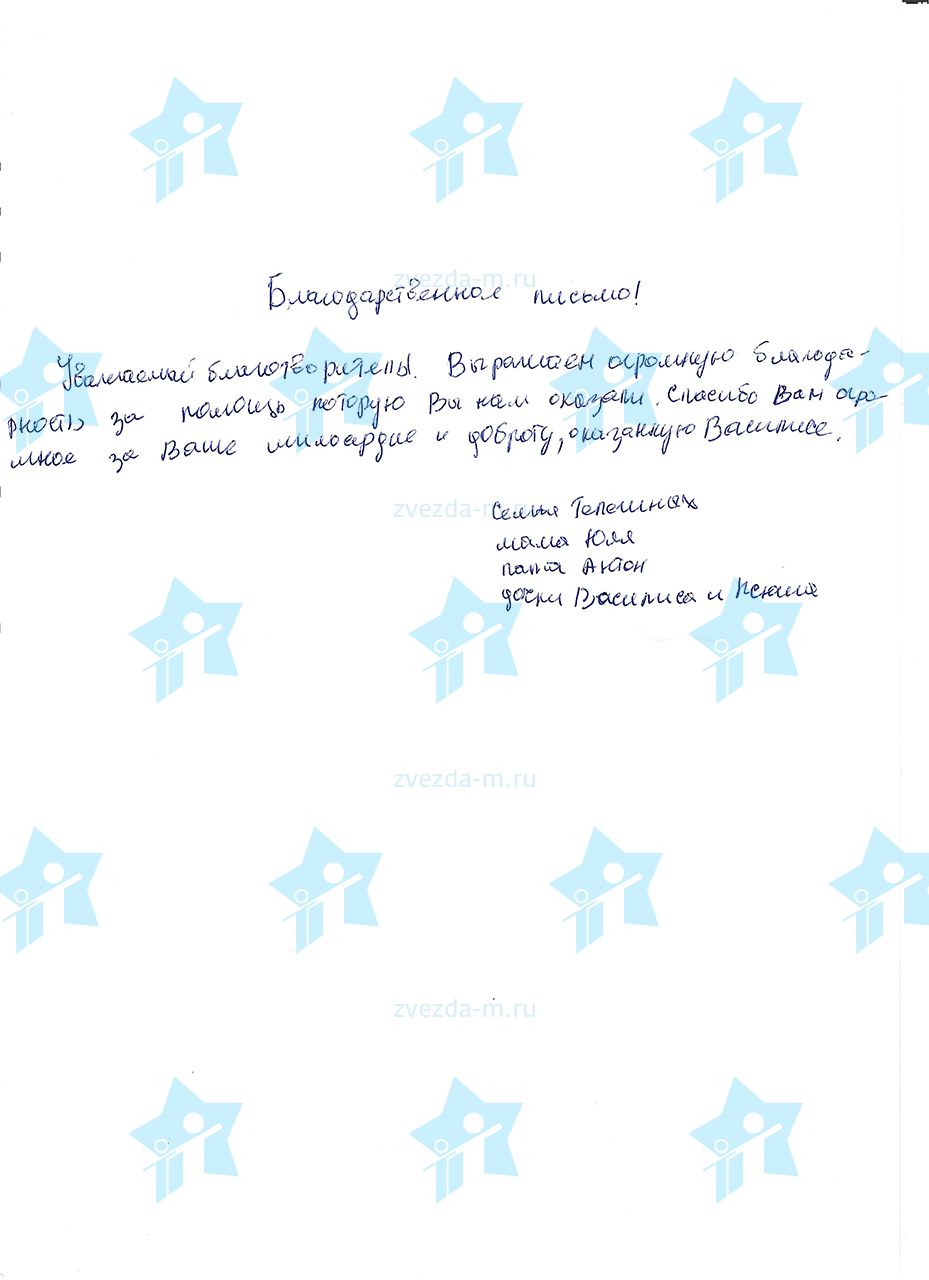 zvezda-m.ru
Благодарственное письмо!
Уважаемый благотворители. Выражаем огромную благода-
рность за помощь которую Вы нам оказали. Спасибо Вам огро-
мное за Ваше милосердие и доброту, оказанную Василисе.
zvezda-m.ru
Семья
мама Юля
папа Антон
дочки Василиса и Ксюша
zvezda-m.ru
zvezda-m.ru